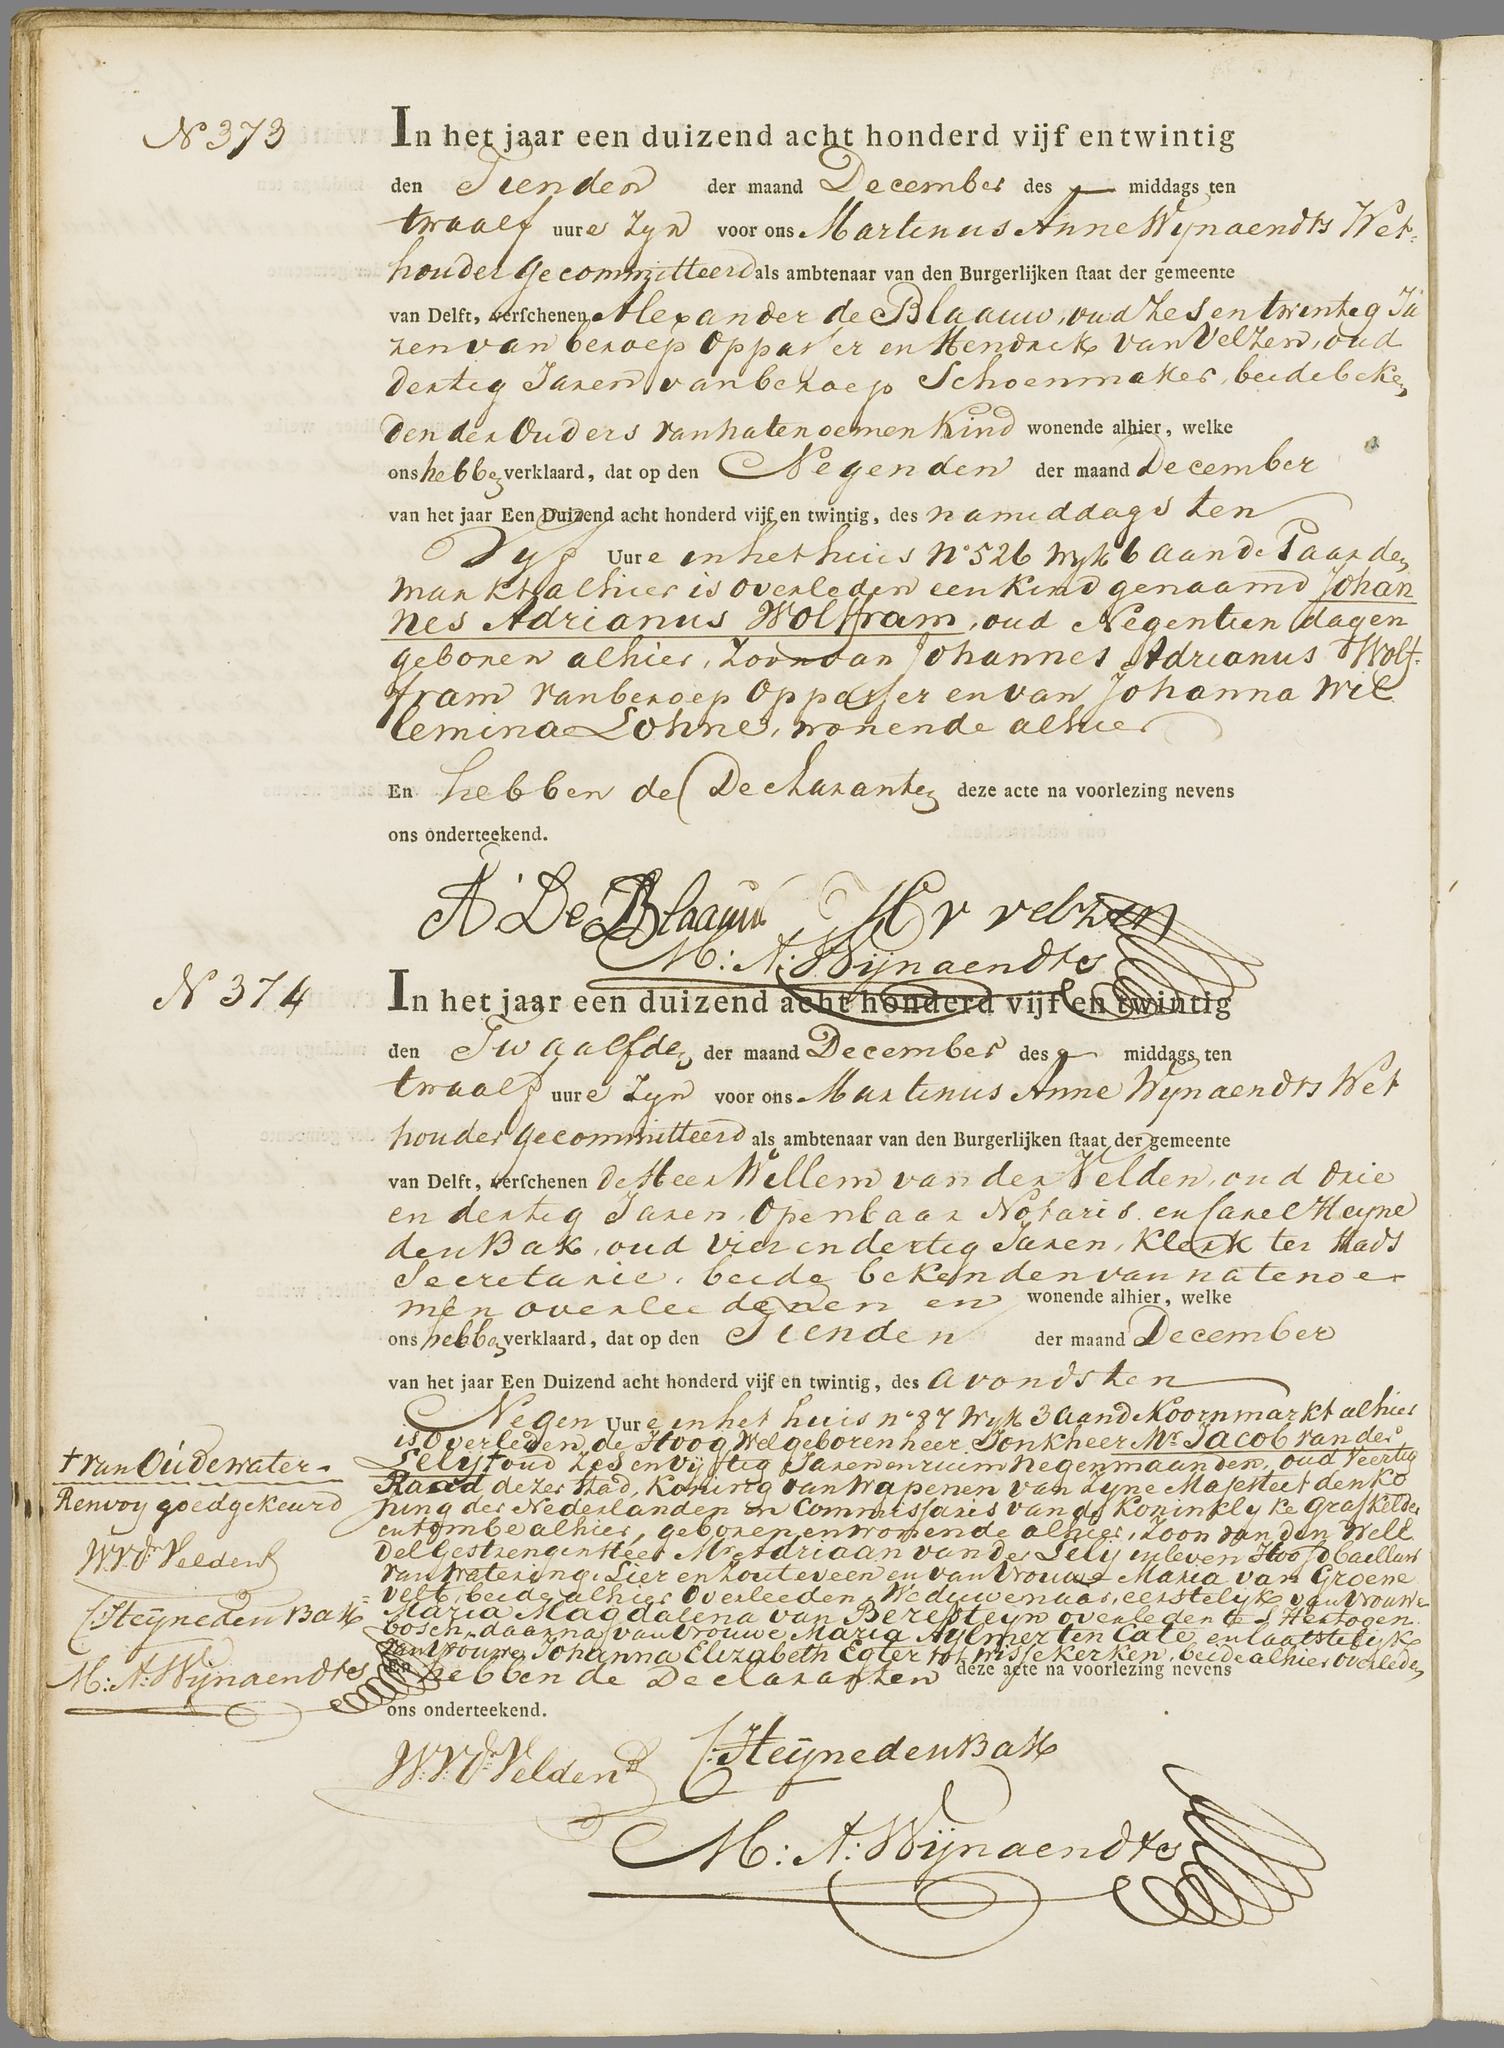 N 373
In het jaar een duizend acht honderd vijf en twintig
den Tienden der maand December des — middags ten
twaalf uure zyn voor ons Martinus Anne Wynaendts Wet-
houder gecommitteerd als ambtenaar van den Burgerlijken staat der gemeente
van Delft, verschenen Alexander de Blaauw, oud zes en twintig Ja
ren van beroep Oppasser en Hendrik van Velzen, oud
dertig Jaren van beroep Schoenmaker, beide beken
den der Ouders van natenoemen Kind wonende alhier, welke
ons hebben verklaard, dat op den Negenden der maand December
van het jaar Een Duizend acht honderd vijf en twintig, des namiddags ten
Vyf Uure in het huis N° 526 Wyk 6 aan de Paarden
markt alhier is overleden een kind genaamd Johan
nes Adrianus Wolfram, oud Negentien dagen
geboren alhier, Zoon van Johannes Adrianus Wolf-
fram van beroep Oppasser en van Johanna Wil
lemina Lohne, wonende alhier
En hebben de Declaranten deze acte na voorlezing nevens
ons onderteekend.
A De Blaauw H v velzen
M: A: Wijnaendts
N 374
In het jaar een duizend acht honderd vijf en twintig
den Twaalfden der maand December des — middags ten
twaalf uure zyn voor ons Martinus Anne Wynaendts Wet
houder gecommitteerd als ambtenaar van den Burgerlijken staat der gemeente
van Delft, verschenen de Heer Willem van der Velden, oud drie
en dertig Jaren, Openbaar Notaris en Carel Heyne
den Bak, oud Vier en dertig Jaren, Klerk ter Stads
Secretarie, beide bekenden van natenoe-
men overleedenen en wonende alhier, welke
ons hebben verklaard, dat op den Tienden der maand December
van het jaar Een Duizend acht honderd vijf en twintig, des avonds ten
Negen Uure in het huis n° 87 Wyk 3 aan de Koornmarkt alhier
is Overleden de Hoog Welgeboren heer Jonkheer Mr Jacob van der
Lely† oud zes en vyftig Jaren en ruim negen maanden, oud Veertig
Raad dezer Stad, Koning van Wapenen van Zyne Majesteit den Ko
ning der Nederlanden en Commissaris van de Koninklyke Grafkelder
en tombe alhier, geboren en wonende alhier, Zoon van den Well
Del Gestrengen Heer Mr Adriaan van der Lely in leven Hoofdbailluw
van Watering, Lier en Zouteveen en van Vrouwe Maria van Groene
velt, beide alhier Overleeden, Weduwenaar, eerstelyk van Vrouwe
Maria Magdalena van Beresteyn overleden te s Hertogen
bosch, daarna van Vrouwe Maria Aylmer ten Cate, en laatstelijk
van Vrouwe Johanna Elizabeth Egter tot Wissekerken, beide alhier overleden
En hebben de Declaranten deze acte na voorlezing nevens
ons onderteekend.
† van Oudewater-
Renvoy goedgekeurd
W. V. Dr Velden
C. Heijneden Bak
M: A: Wijnaendts
W. V. Dr Velden C. Heijneden Bak
M: A: Wijnaendts